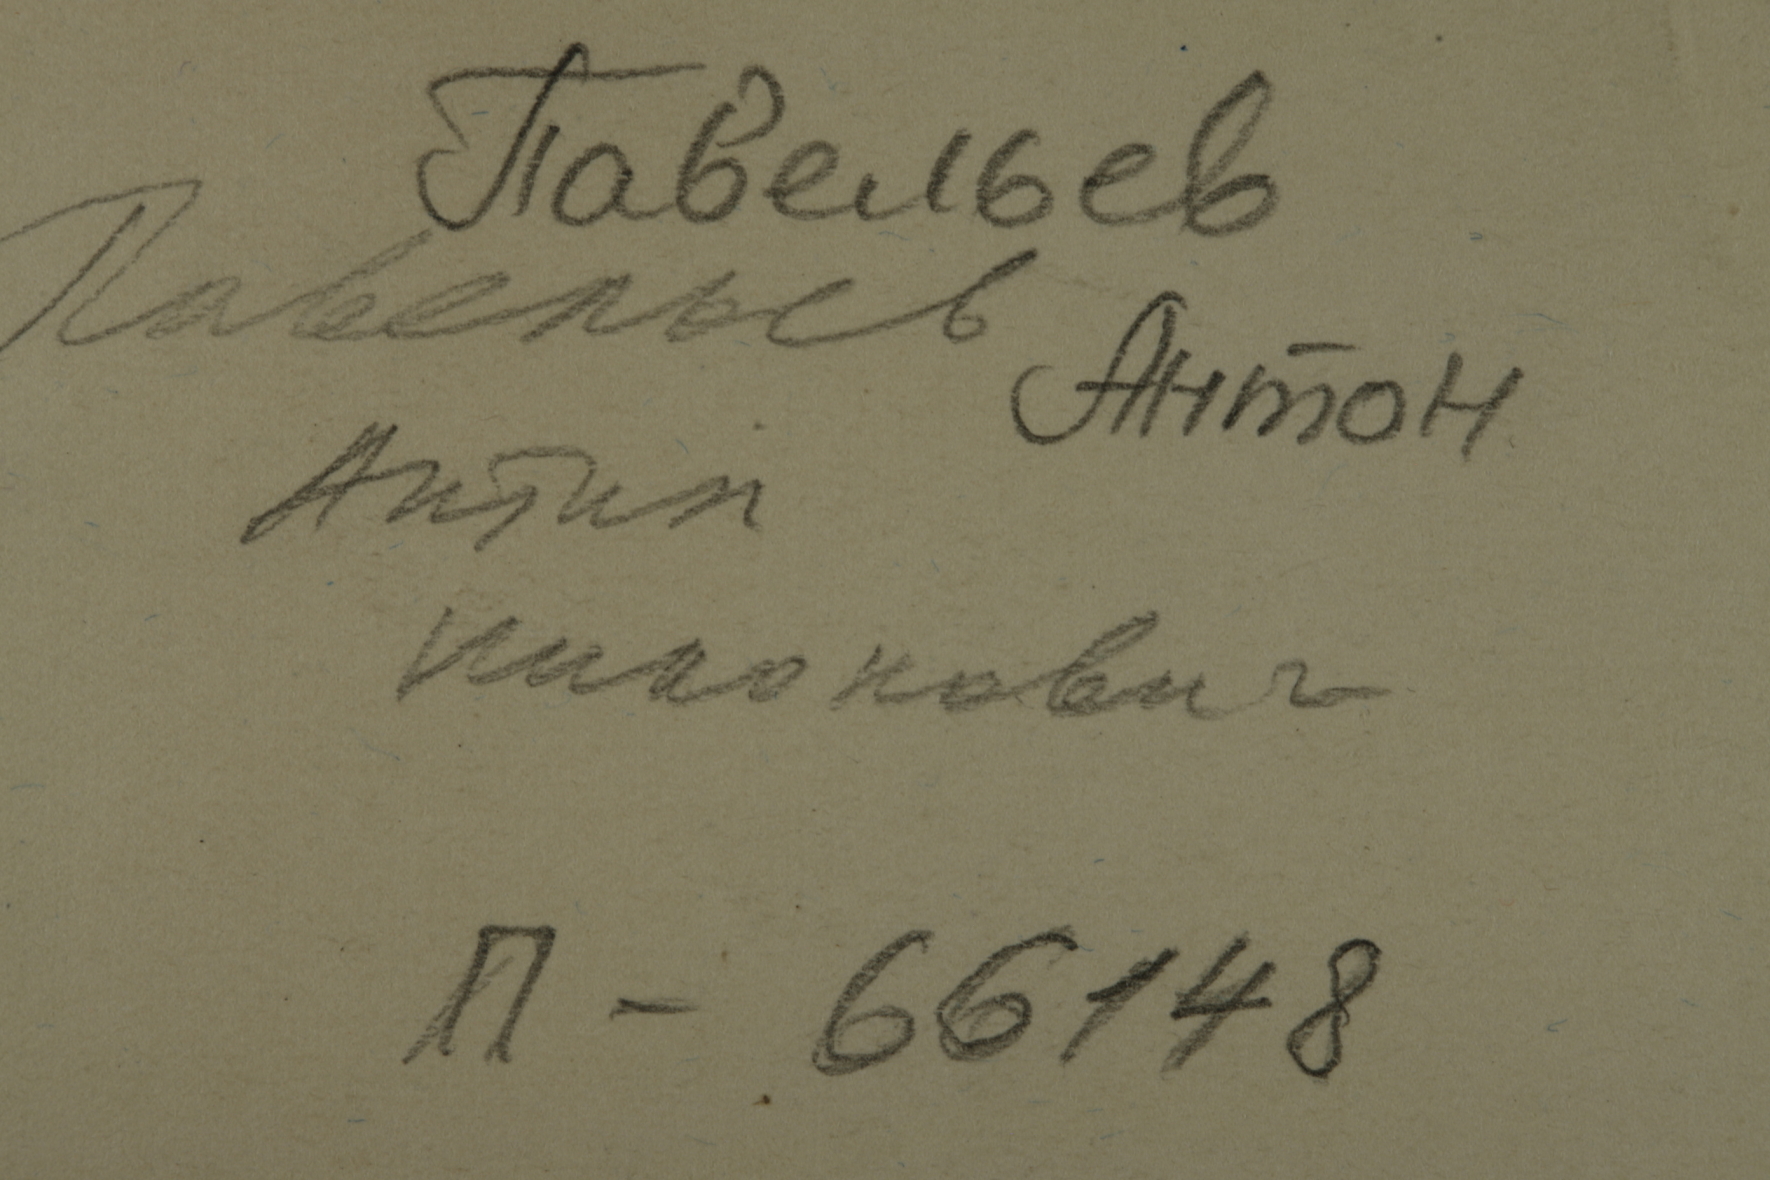 Павельев
Павельев
Антон
Антип
Никонович
П - 66148